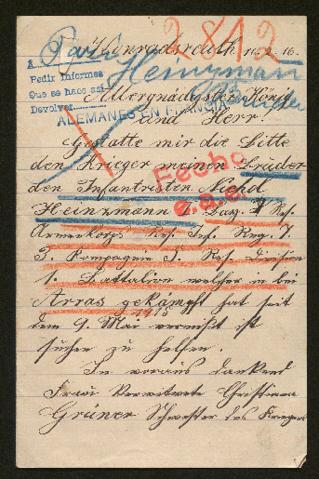 2812
Konradsreuth 10.2.16.
Heinzmann
Pedir Informes
Que se hace así
Devolver
Allergnädigster König
ALEMANES EN FRANCIA
und Herr!
Gestatte mir die Bitte
den Krieger meinen Brüder
Fecho
den Infantristen
Heinzmann Res.
Armeekorps Res. Inf. Reg. 7.
3. Kompagnie 5. Res. Division
1. Battalion welcher in bei
Arras gekämpft hat seit
1915
dem 9. Mai vermisst ist
suchen zu helfen.
In voraus dankend
Frau Verwitwete Christiana
Grüner Schwester des Kriegers